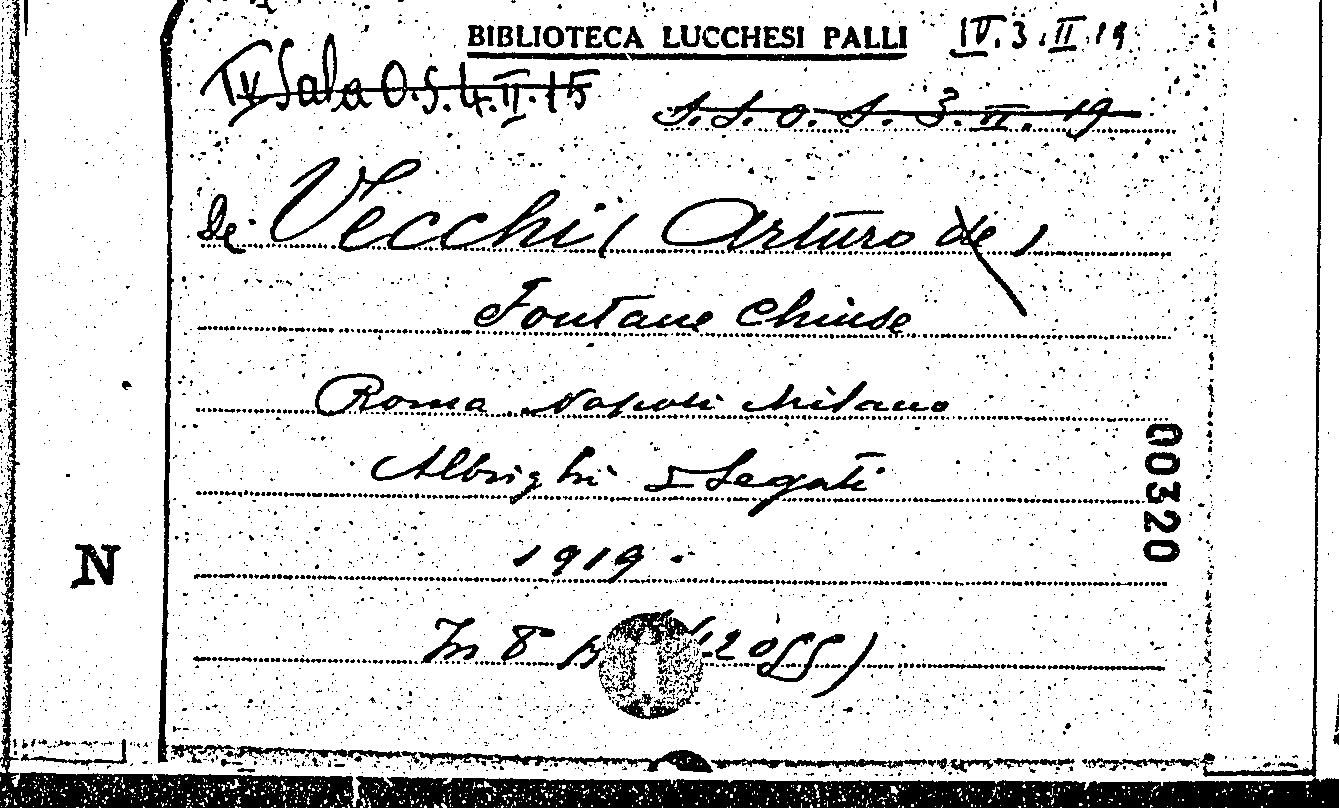 BIBLIOTECA LUCCHESI PALLI IV.3.II.19
IV Sala O.S.4.II.15
S.S.O.S.3.II.19
De Vecchi (Arturo de)
Fontane chiuse
Roma Napoli Milano
Albrighi Segati
1919.
In 8 (2 off)
00320
N